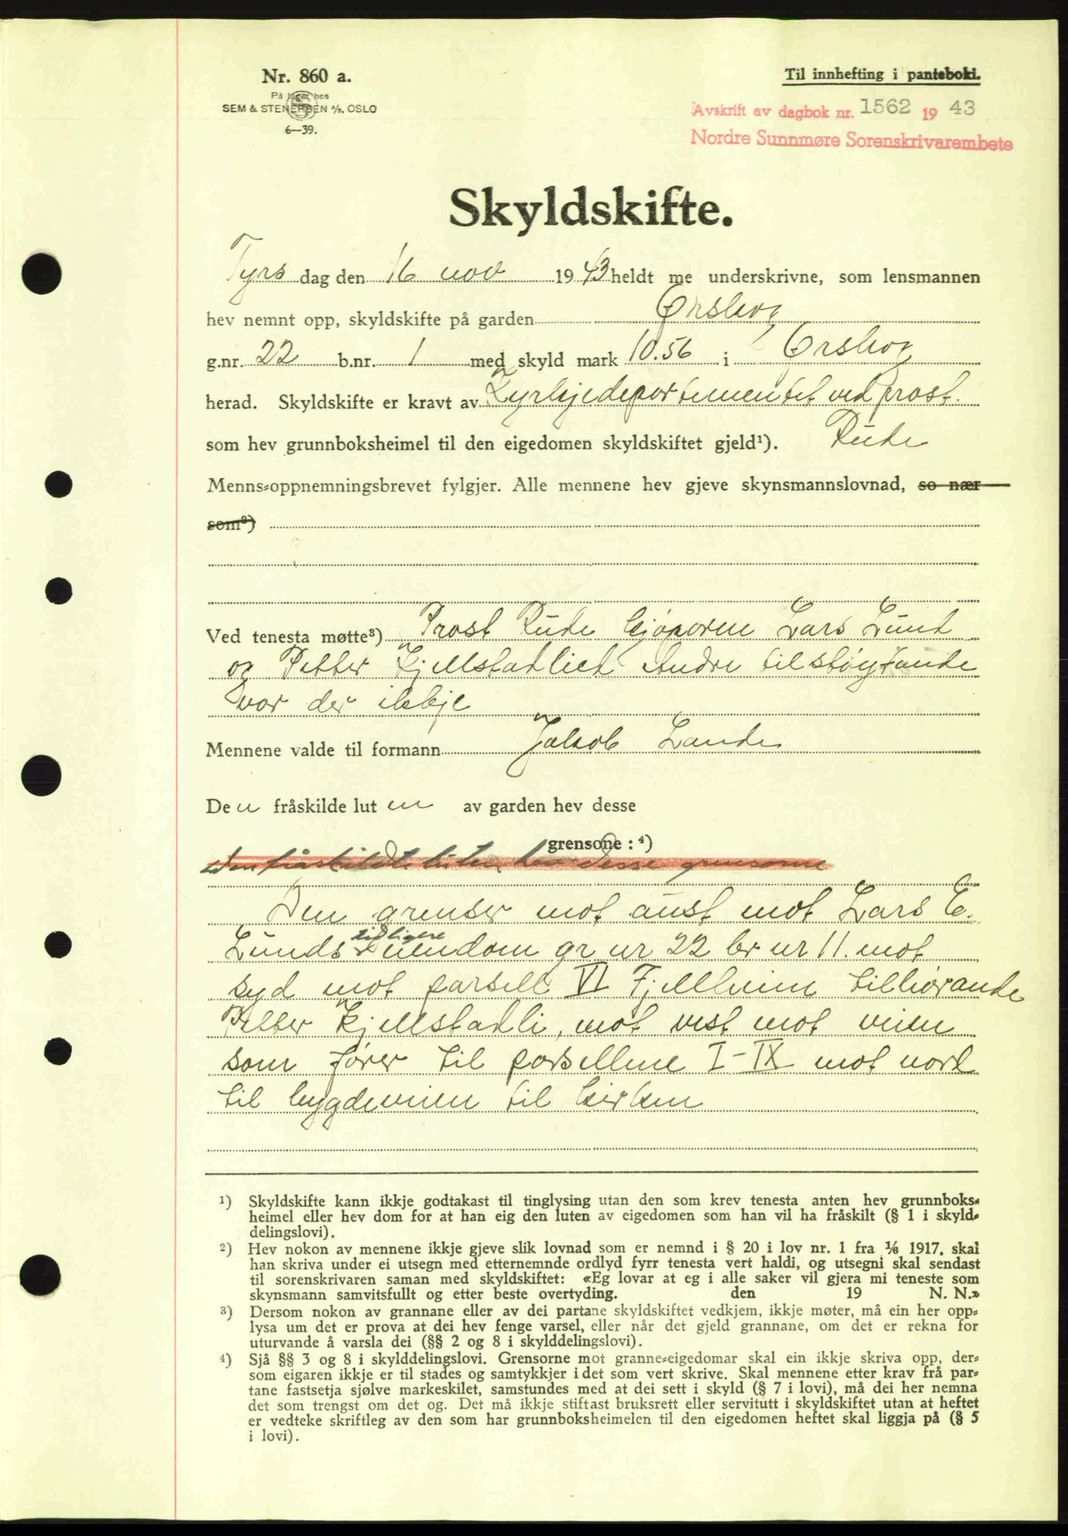 Nr. 860 a.
På lager hos
SEM & STENERSEN A/S, OSLO
6—39.
Til innhefting i panteboki.
Avskrift av dagbok nr. 1562 19 43
Nordre Sunnmøre Sorenskrivarembete
Skyldskifte.
Tyrs dag den 16 nov 1943 heldt me underskrivne, som lensmannen
hev nemnt opp, skyldskifte på garden Ørskog
g.nr. 22 b.nr. 1 med skyld mark 10.56 i Ørskog
herad. Skyldskifte er kravt av Kyrkjedepartementet ved prost.
som hev grunnboksheimel til den eigedomen skyldskiftet gjeld¹). Rude
Menns-oppnemningsbrevet fylgjer. Alle mennene hev gjeve skynsmannslovnad, so nær
som²)
Ved tenesta møtte³) Prost Rude kjøparen Lars Lund
og Petter Kjellstadlid Andre tilstøytande
var der ikkje
Mennene valde til formann Jakob Lande
De n fråskilde lut en av garden hev desse
grensone: ⁴)
Den fråskildte luten hev desse grensone
Den grenser mot aust mot Lars E.
Lunds tidligere eiendom gr nr 22 br nr 11. mot
syd mot parsell VI Fjellheim tilhørande
Petter Kjellstadli, mot vest mot veien
som fører til parsellene I-IX mot nord
til bygdeveien til kirken
¹) Skyldskifte kann ikkje godtakast til tinglysing utan den som krev tenesta anten hev grunnboks-
heimel eller hev dom for at han eig den luten av eigedomen som han vil ha fråskilt (§ 1 i skyld-
delingslovi).
²) Hev nokon av mennene ikkje gjeve slik lovnad som er nemnd i § 20 i lov nr. 1 fra 1/6 1917, skal
han skriva under ei utsegn med etternemnde ordlyd fyrr tenesta vert haldi, og utsegni skal sendast
til sorenskrivaren saman med skyldskiftet: «Eg lovar at eg i alle saker vil gjera mi teneste som
skynsmann samvitsfullt og etter beste overtyding. den 19 N. N.»
³) Dersom nokon av grannane eller av dei partane skyldskiftet vedkjem, ikkje møter, må ein her opp-
lysa um det er prova at dei hev fenge varsel, eller når det gjeld grannane, om det er rekna for
uturvande å varsla dei (§§ 2 og 8 i skylddelingslovi).
⁴) Sjå §§ 3 og 8 i skylddelingslovi. Grensorne mot granne-eigedomar skal ein ikkje skriva opp, der-
som eigaren ikkje er til stades og samtykkjer i det som vert skrive. Skal mennene etter krav frå par-
tane fastsetja sjølve markeskilet, samstundes med at dei sett i skyld (§ 7 i lovi), må dei her nemna
det som trengst om det og. Det må ikkje stiftast bruksrett eller servitutt i skyldskiftet utan at heftet
er vedteke skriftleg av den som har grunnboksheimelen til den eigedomen heftet skal liggja på (§ 5
i lovi).